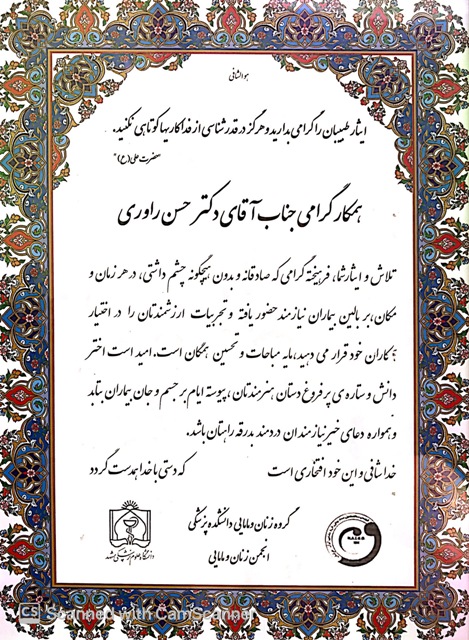 هو الشافی
ایثار طبیبان را گرامی بدارید و هرگز در قدرشناسی از فداکاریها کوتاهی نکنید.
حضرت علی (ع)
همکار گرامی جناب آقای دکتر حسن راوری
تلاش و ایثار شما، فرهیخته گرامی که صادقانه و بدون هیچگونه چشم داشتی، در هر زمان و
مکان، بر بالین بیماران نیازمند حضور یافته و تجربیات ارزشمندتان را در اختیار
همکاران خود قرار می دهید، مایه مباهات و تحسین همگان است. امید است اختر
دانش و ستاره ی پر فروغ دستان هنرمندتان، پیوسته ایام بر جسم و جان بیماران بتابد
و همواره دعای خیر نیازمندان دردمند بدرقه راهتان باشد.
خدا شافی و این خود افتخاری است که دستی با خدا همدست گردد
گروه زنان و مامایی دانشکده پزشکی
انجمن زنان و مامایی
دانشگاه علوم پزشکی مشهد
CS Scanned with CamScanner